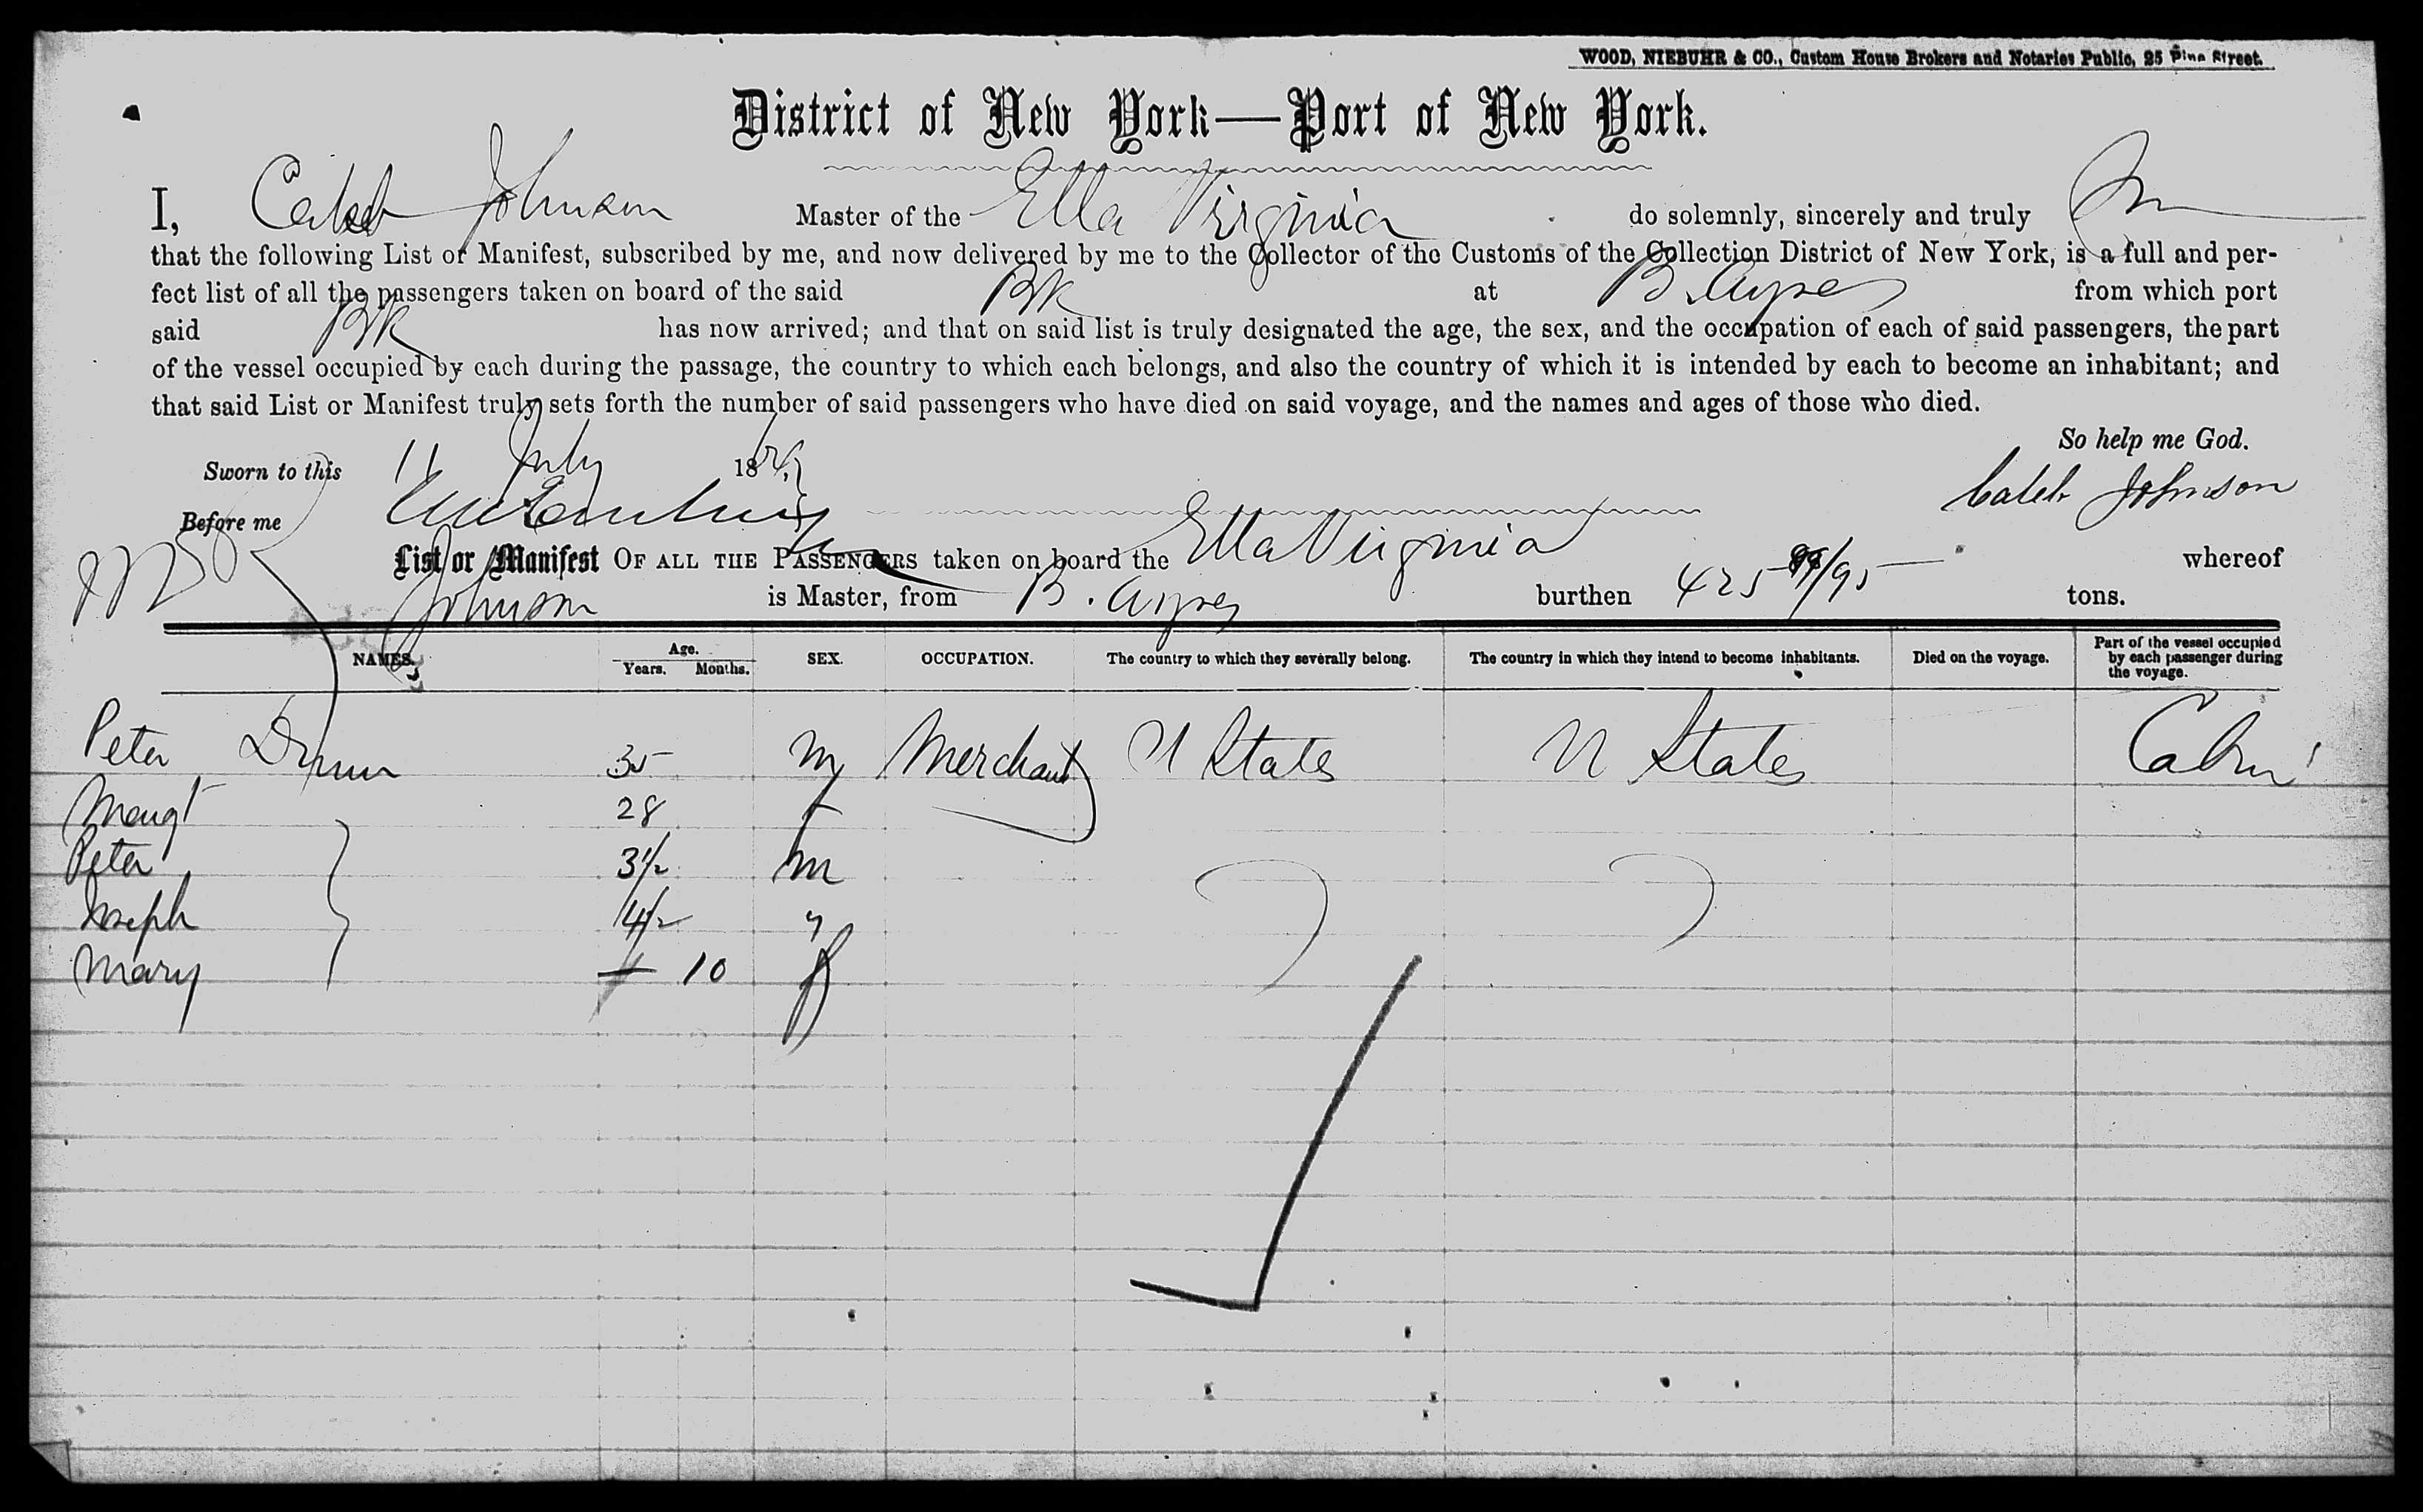 WOOD, NIEBUHR & CO., Custom House Brokers and Notaries Public, 25 Pine Street.
District of New York—Port of New York.
I, Caleb Johnson Master of the Ella Virginia do solemnly, sincerely and truly
that the following List or Manifest, subscribed by me, and now delivered by me to the Collector of the Customs of the Collection District of New York, is a full and per-
fect list of all the passengers taken on board of the said Bk at B. Ayres from which port
said Bk has now arrived; and that on said list is truly designated the age, the sex, and the occupation of each of said passengers, the part
of the vessel occupied by each during the passage, the country to which each belongs, and also the country of which it is intended by each to become an inhabitant; and
that said List or Manifest truly sets forth the number of said passengers who have died on said voyage, and the names and ages of those who died.
So help me God.
Sworn to this 11 July 18
Caleb Johnson
Before me
List or Manifest OF ALL THE PASSENGERS taken on board the Ella Virginia whereof
Johnson is Master, from B. Ayres burthen 425 /95 tons.
NAMES. Age. Years. Months. SEX. OCCUPATION. The country to which they severally belong. The country in which they intend to become inhabitants. Died on the voyage. Part of the vessel occupied by each passenger during the voyage.
Peter 35 m Merchant U States U States Cabin
Margt 28 f
Peter 3 1/2 m
Joseph 4/2 "
Mary 10 f